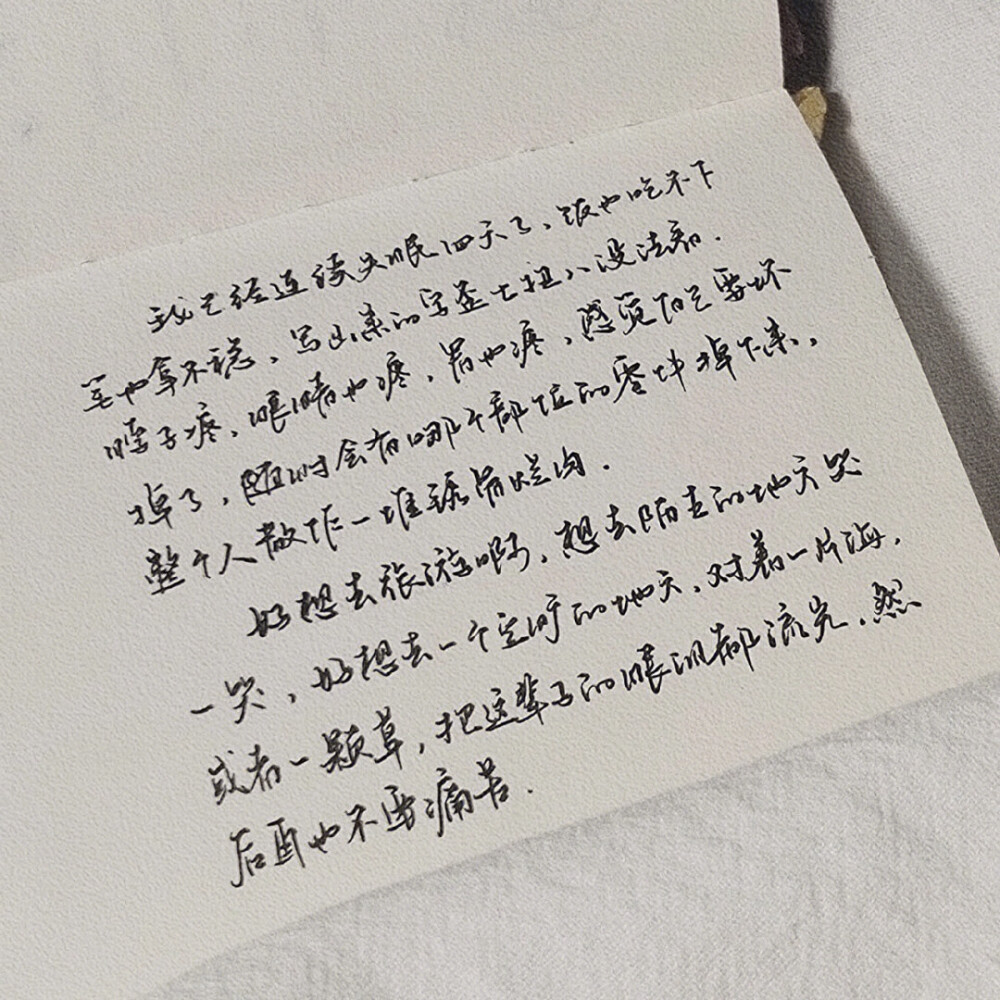 我已经连续失眠四天了、饭也吃不下
笔也拿不稳、写出来的字歪七扭八没法看.
嗓子疼、眼睛也疼、胃也疼、感觉自己要坏
掉了，随时会有哪个部位的零件掉下来，
整个人散作一堆锈骨烂肉.
好想去旅游啊，想去陌生的地方哭
一哭，好想去一个空旷的地方、对着一片海，
或者一颗草，把这辈子的眼泪都流光，然
后再也不要痛苦.